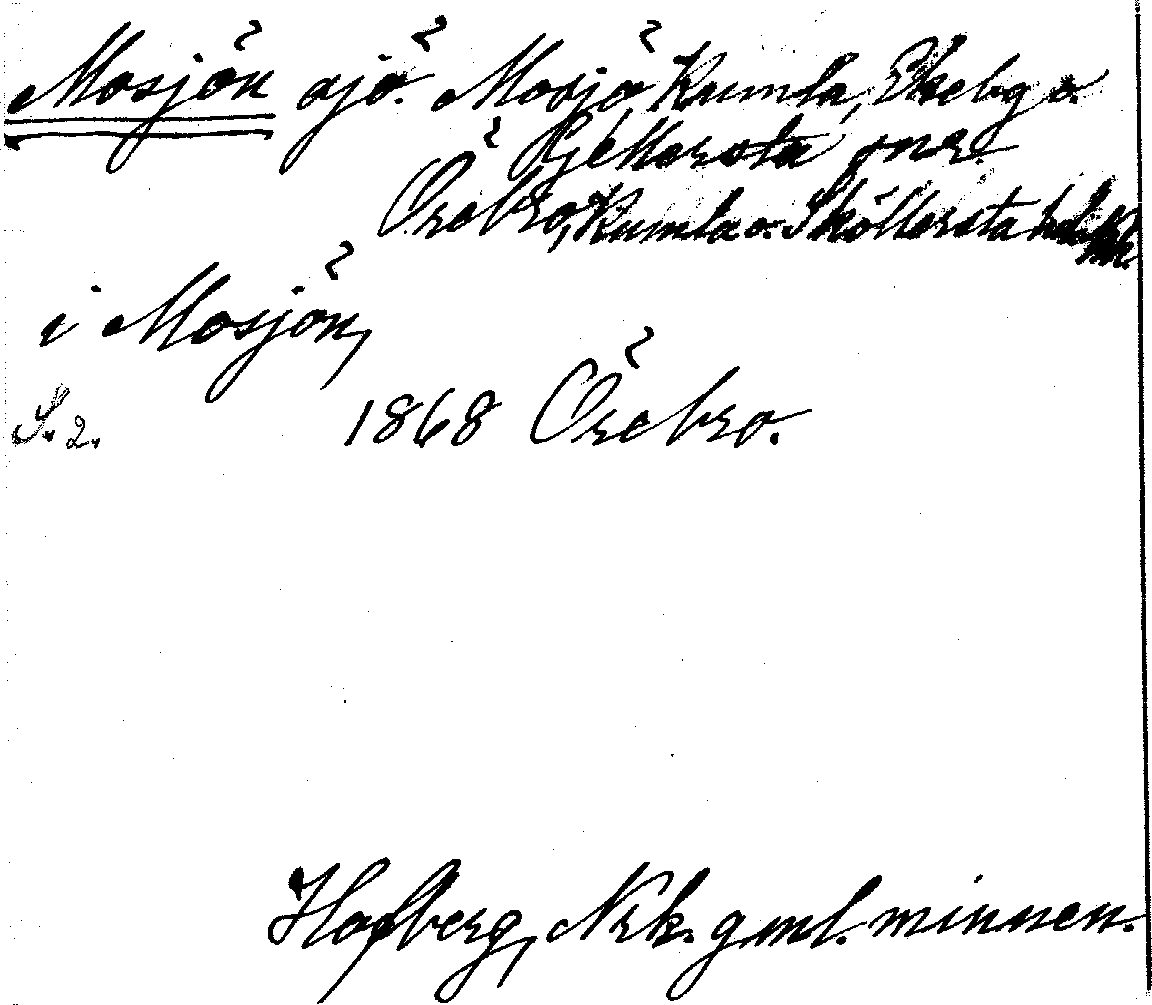 Mosjön sjö. Mosjö, Kumla, Ekeby o.
Gällersta snr.
Örebro, Kumla o. Sköllersta hd. Nrk.
i Mosjön,
S. 2. 1868 Örebro.
Hofberg, Nrk. gml. minnen.